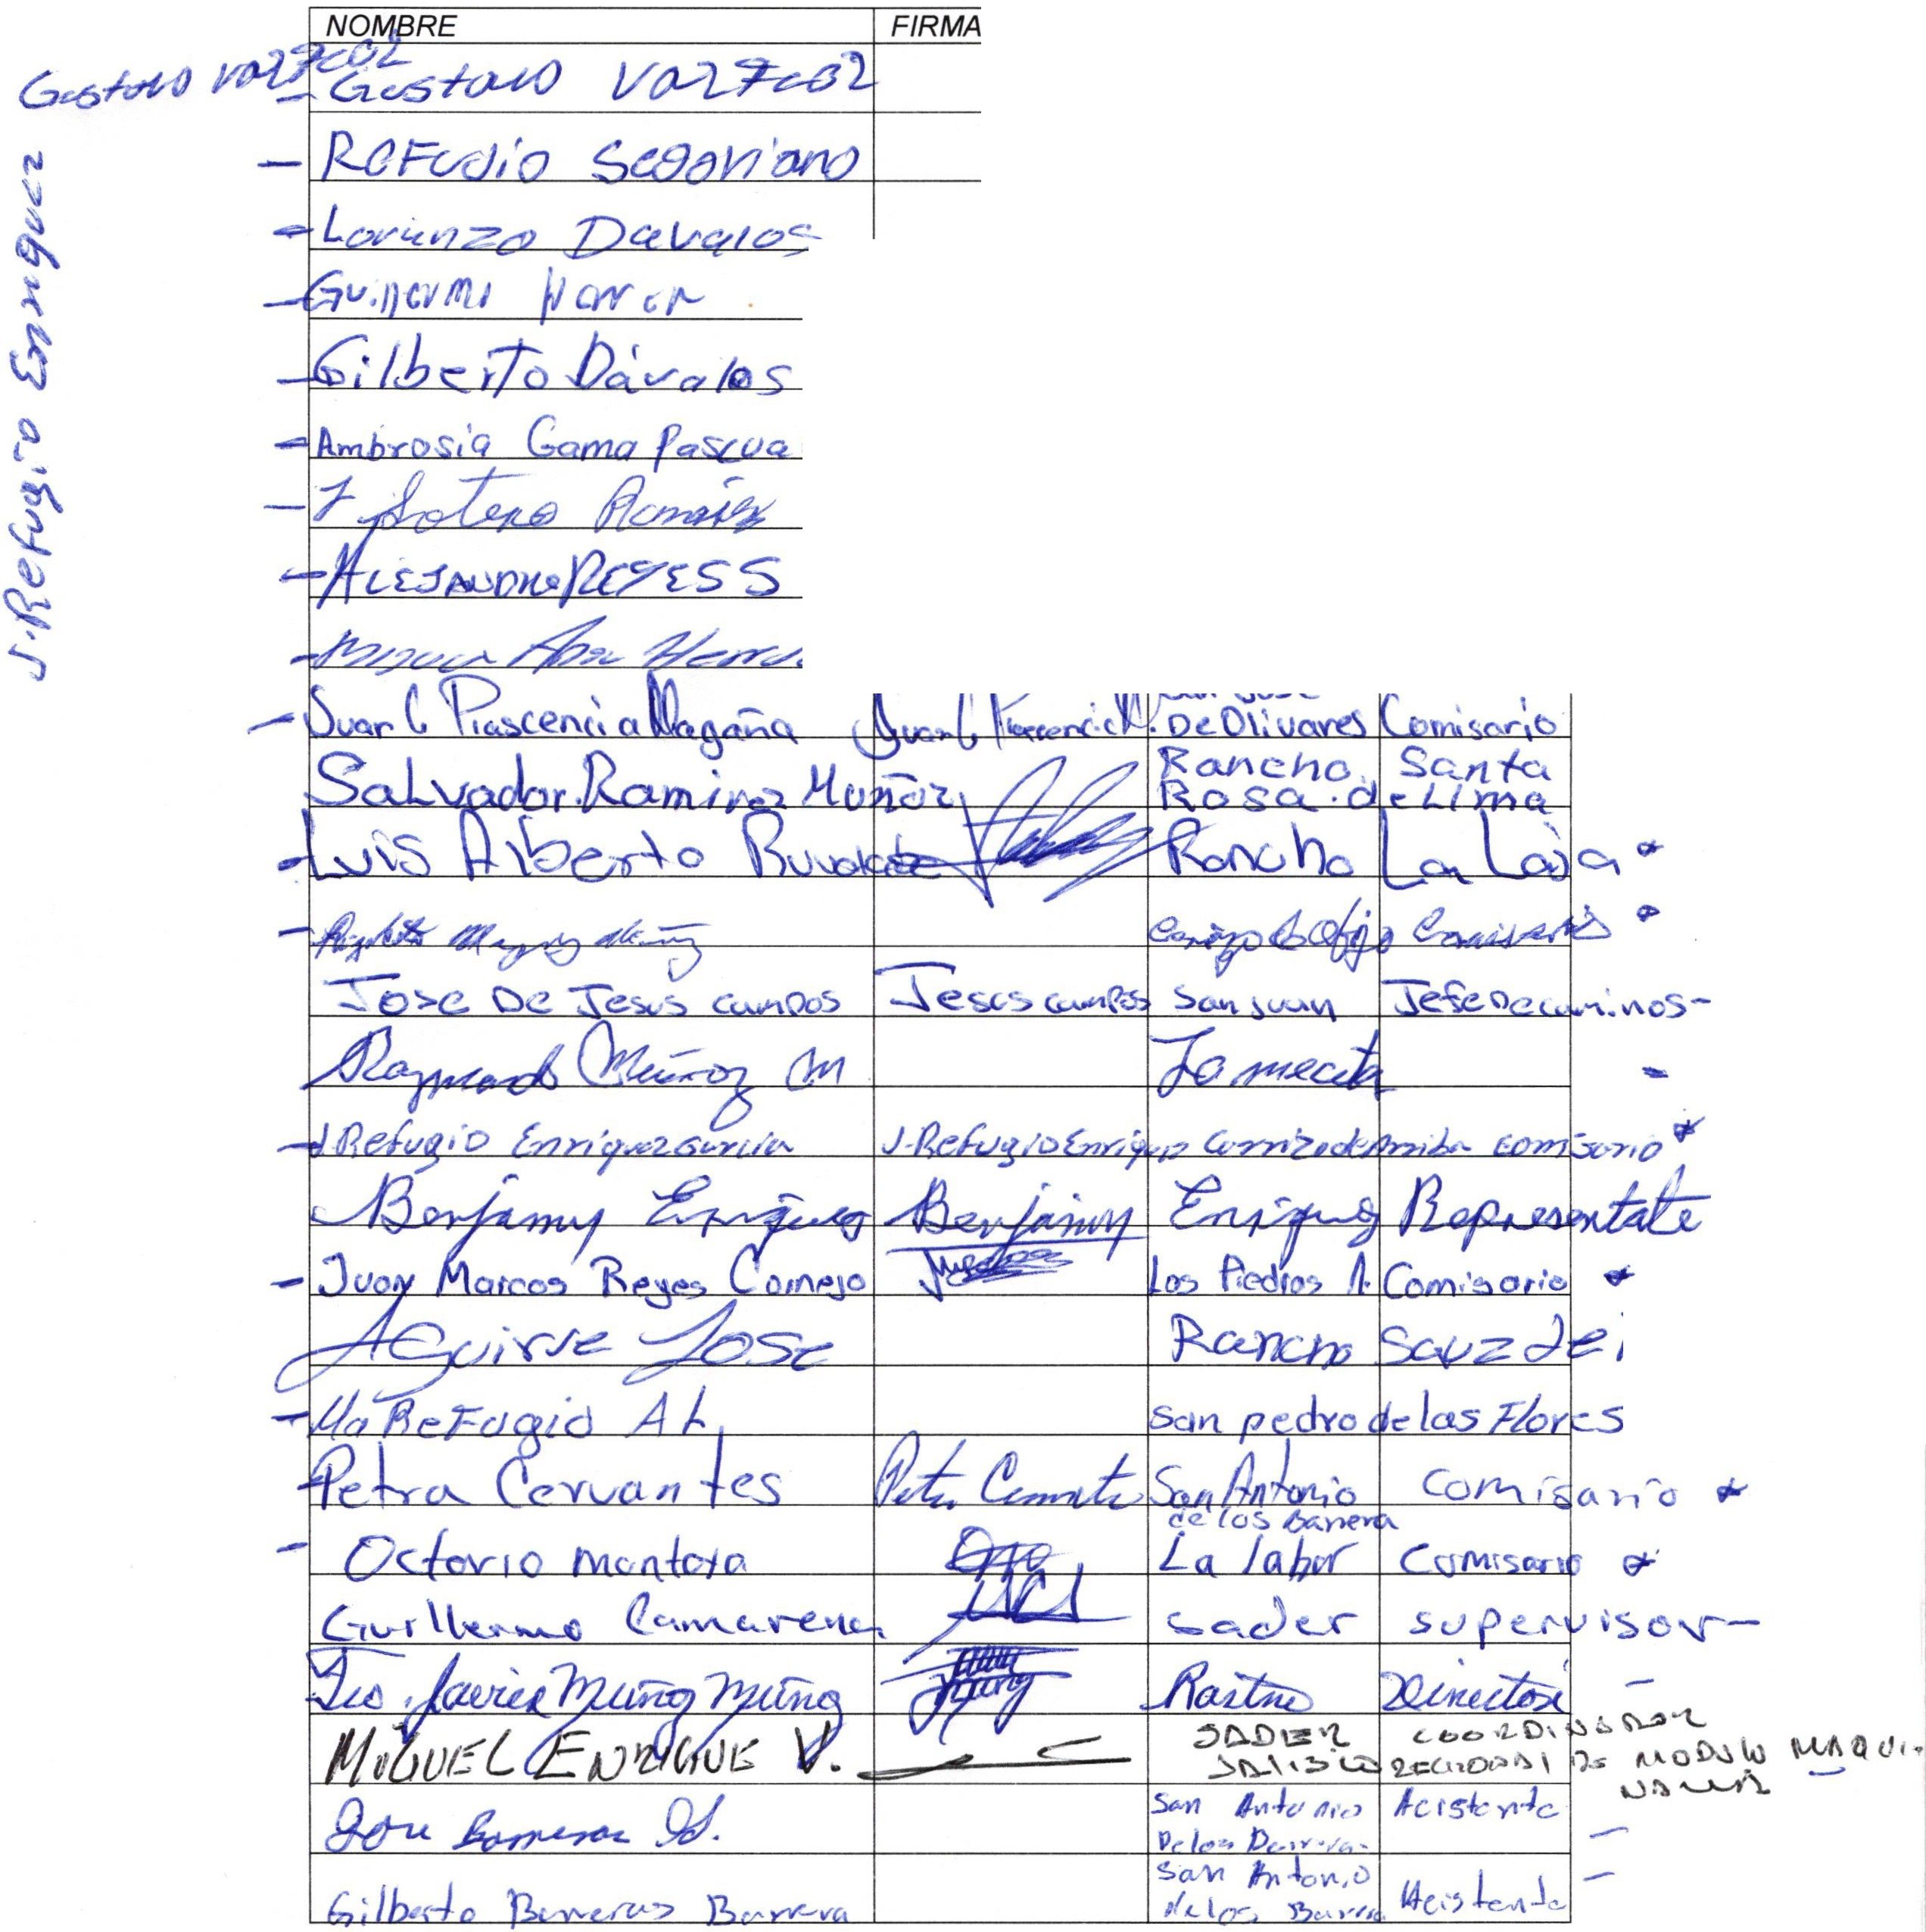 NOMBRE FIRMA
Gustavo Vazquez
Gustavo Vazquez
J. Refugio Enriquez
Refugio Segoviano
Lorenzo Davalos
Guillermo
Gilberto Dávalos
Ambrosia Gama Pascua
J Sotero Ramirez
ALEJANDRO REYES S
Juan C Plascencia Magaña Juan C Plascencia M. De Olivares Comisario
Salvador Ramirez Muñoz Rancho Santa
Rosa de Lima
Luis Alberto Rancho La Laja
Comisario
Jose De Jesus campos Jesus campos San Juan Jefe De caminos
Raymundo Muñoz M La mecita
J. Refugio Enriquez Garcia J. Refugio Enriquez Carrizo de Arriba comisario
Benjamin Enriquez Benjamin Enriquez Representate
Juan Marcos Reyes Cornejo Las Piedras A. Comisario
Aguirre Jose Rancho Sauz de
Ma Refugio A L San pedro de las Flores
Petra Cervantes Petra Cervantes San Antonio comisario
de los Barrera
Octavio montoya La labor comisario
Guillermo Camarena sader supervisor
Fco. Javier Muñoz Muñoz Rastro Director
MIGUEL ENRIQUE V. SADER COORDINADOR
JALISCO REGIONAL DE MODULO MAQUI
NARIA
Jose San Antonio Acistente
De los Barrera
San Antonio
Gilberto Barreras Barrera De los Barrera Acistente